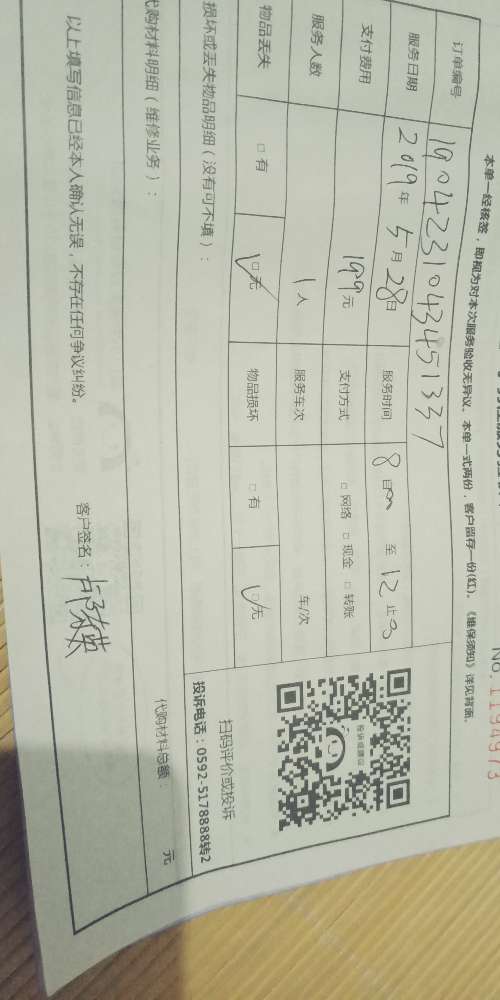 No.1194973
本单一经核签，即视为对本次服务验收无异议。本单一式两份，客户留存一份(红)。《维保须知》详见背面。
订单编号 1904231043451337
服务日期 2019年5月28日 服务时间 8 至 12 止
支付费用 199元 支付方式 □网络 □现金 □转账
服务人数 1人 服务车次 车/次
物品丢失 □有 □无 物品损坏 □有 □无
投诉或建议
扫码评价或投诉
投诉电话：0592-5178888转2
损坏或丢失物品明细（没有可不填）：
代购材料明细（维修业务）： 代购材料总额： 元
以上填写信息已经本人确认无误，不存在任何争议纠纷。 客户签名：